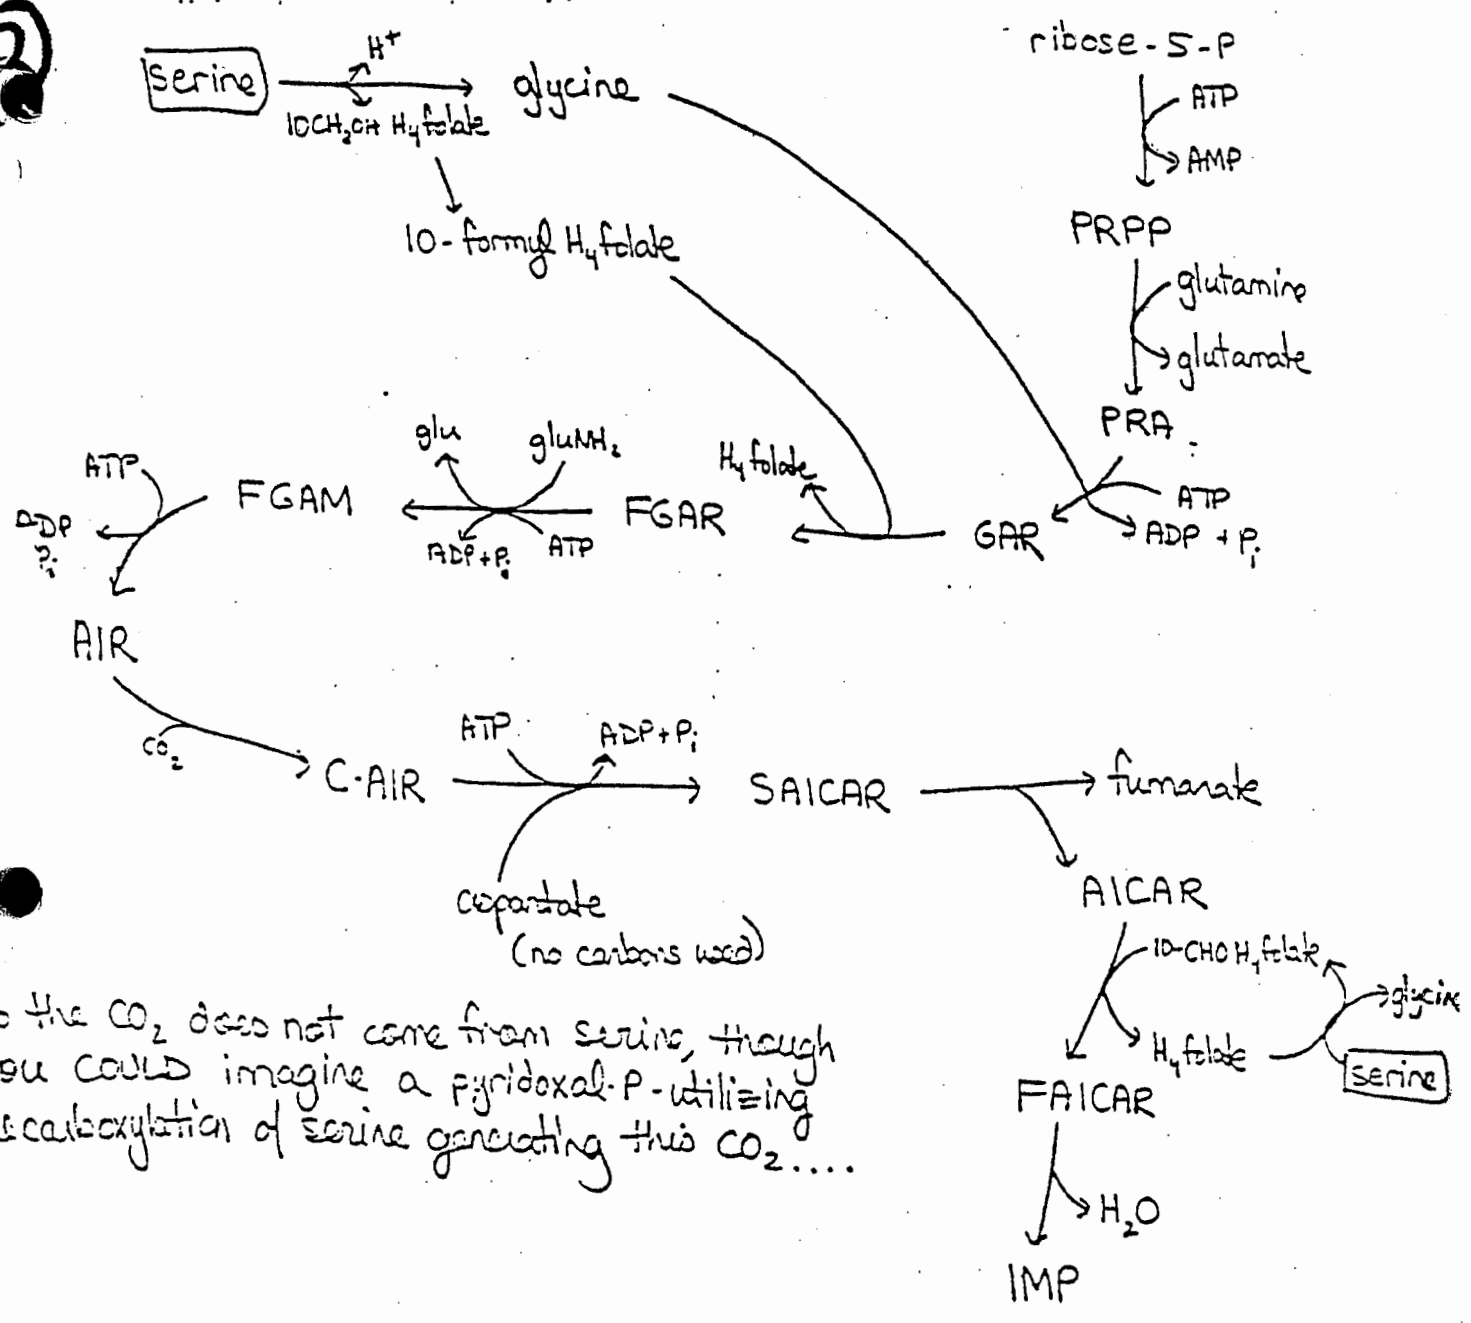 serine
H+
10CH₂OH H₄folate
glycine
10-formyl H₄folate
ribose-5-P
ATP
AMP
PRPP
glutamine
glutamate
PRA
ATP
ADP + Pi
GAR
H₄folate
FGAR
glu
gluNH₂
ADP+Pi
ATP
FGAM
ATP
ADP
Pi
AIR
CO₂
C-AIR
ATP
ADP+Pi
aspartate
(no carbons used)
SAICAR
fumarate
AICAR
10-CHO H₄folate
H₄folate
glycine
serine
FAICAR
H₂O
IMP
the CO₂ does not come from serine, though
COULD imagine a pyridoxal-P-utilizing
of serine generating this CO₂....